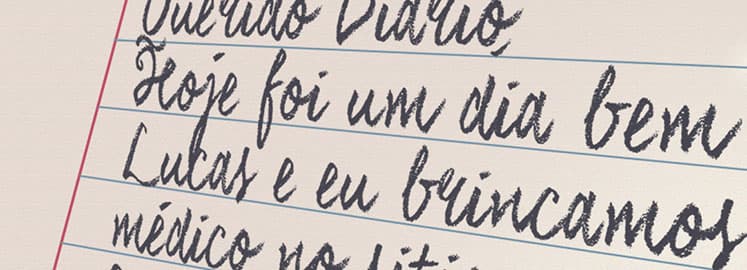 Querido Diário,
Hoje foi um dia bem
Lucas e eu brincamos
médico no sítio